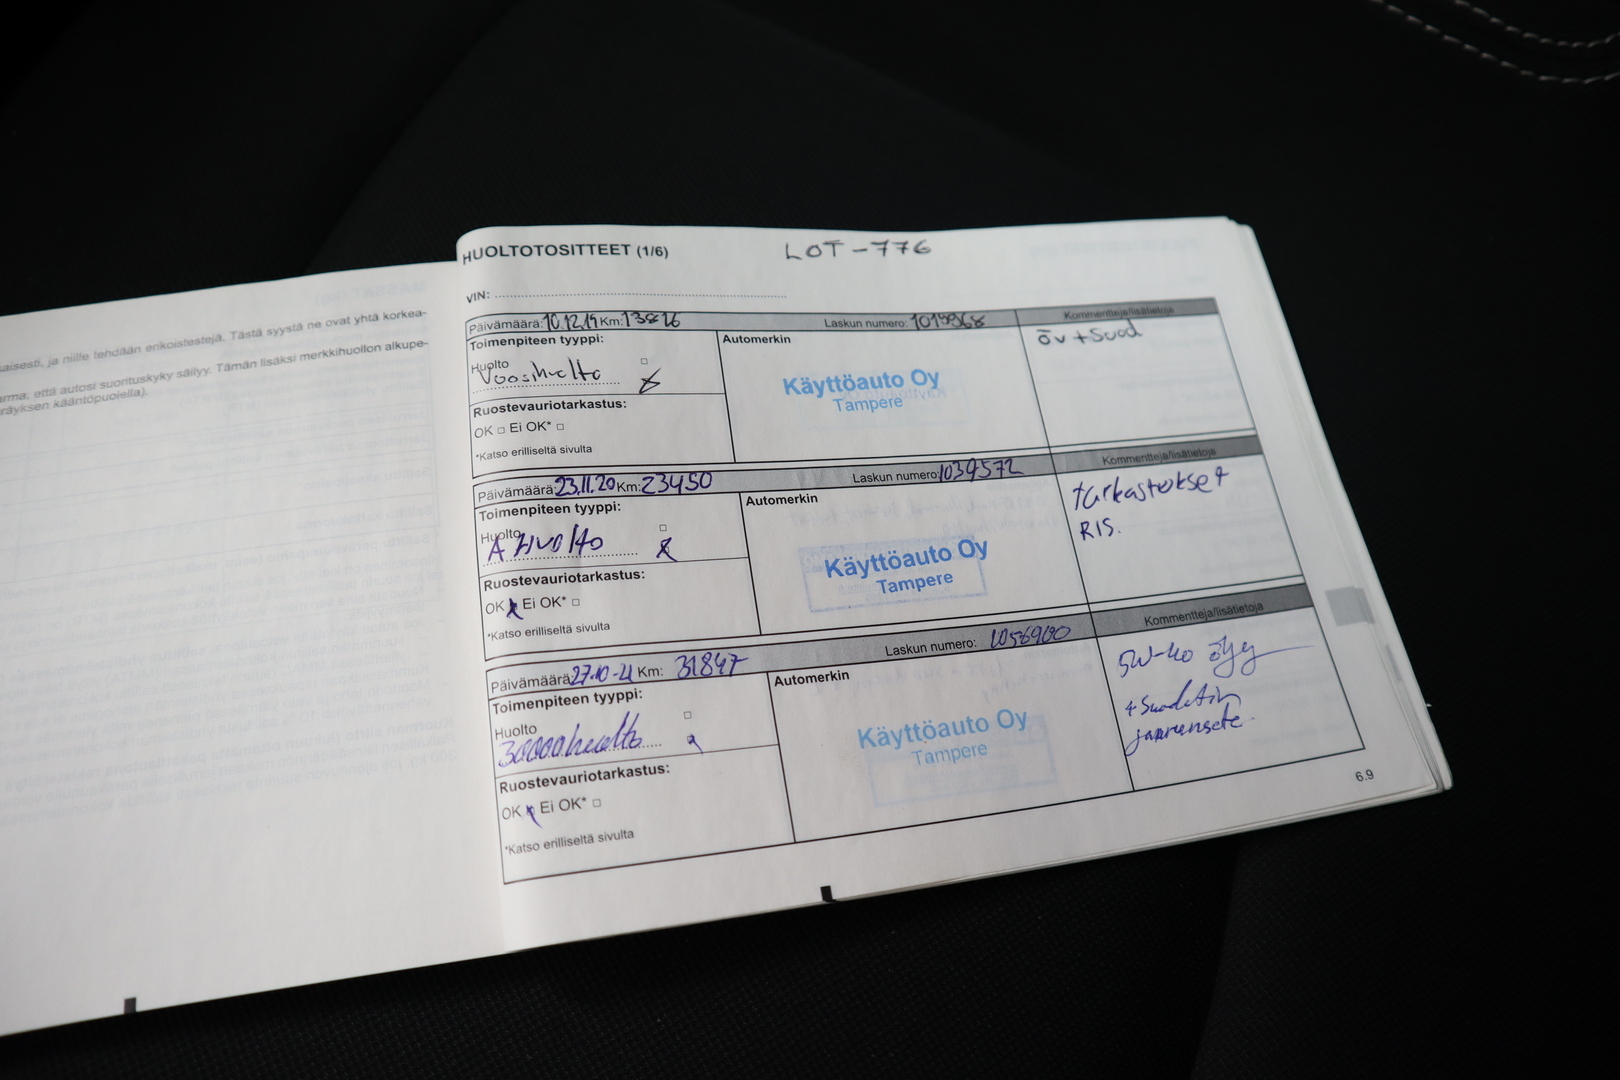 aisesti, ja niille tehdään erikoistestejä. Tästä syystä ne ovat yhtä korkea-
arma, että autosi suorituskyky säilyy. Tämän lisäksi merkkihuollon alkupe-
räyksen kääntöpuolella).
HUOLTOTOSITTEET (1/6)
LOT-776
VIN:
Päivämäärä: 10.12.19 Km: 13826 Laskun numero: 1019968 Kommentteja/lisätietoja
Toimenpiteen tyyppi: Automerkin
öv + Suod
Huolto
Vuosihuolto
Käyttöauto Oy
Tampere
Ruostevauriotarkastus:
OK □ Ei OK* □
*Katso erilliseltä sivulta
Päivämäärä: 23.11.20 Km: 23450 Laskun numero: 1039572 Kommentteja/lisätietoja
Toimenpiteen tyyppi: Automerkin
tarkastukset
RIS.
Huolto
A Huolto
Käyttöauto Oy
Tampere
Ruostevauriotarkastus:
OK Ei OK* □
*Katso erilliseltä sivulta
Päivämäärä: 27-10-21 Km: 31847 Laskun numero: 1056900 Kommentteja/lisätietoja
Toimenpiteen tyyppi: Automerkin
5W-40 öljy
+ Suodatin
Huolto
30000 huolto
Käyttöauto Oy
Tampere
Ruostevauriotarkastus:
OK Ei OK* □
*Katso erilliseltä sivulta
6.9